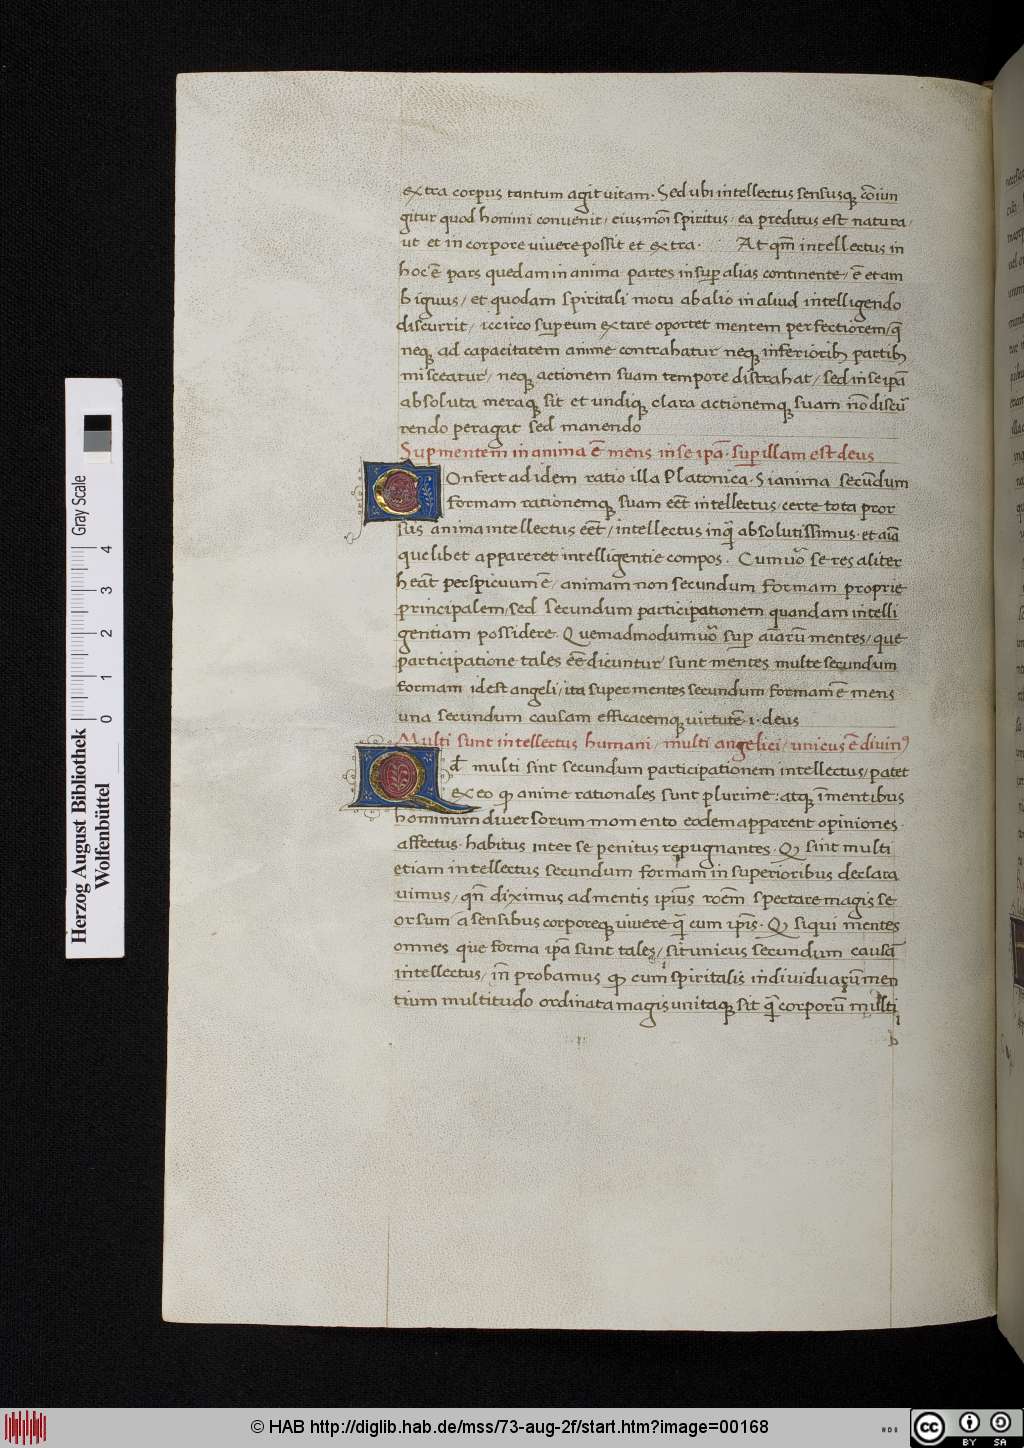 extra corpus tantum agit uitam. Sed ubi intellectus sensusq; cōiun
gitur quod homini convenit / eiusmōi spiritus / ea preditus est natura /
ut et in corpore uiuere possit et extra. At qm̄ intellectus in
hoc ē pars quedam in anima partes insup alias continente / ē et am
biguus / et quodam spiritali motu ab alio in aliud intelligendo
discurrit / iccirco sup eum extare oportet mentem perfectiorem / q̄
neq; ad capacitatem anime contrahatur neq; inferiorib; partib;
misceatur / neq; actionem suam tempore distrahat / sed in se ipā
absoluta meraq; sit et undiq; clara actionemq; suam nō discur̄
rendo peragat sed manendo
Sup mentem in anima ē mens in se ipā. sup illam est deus
Confert ad idem ratio illa Platonica. Si anima secūdum
formam rationemq; suam eēt intellectus / certe tota pror
sus anima intellectus eēt / intellectus inquā absolutissimus. et aīa
quelibet appareret intelligentie compos. Cum uo se res aliter
heāt perspicuum ē / animam non secundum formam proprie
principalem / sed secundum participationem quandam intelli
gentiam possidere. Quemadmodum uo sup aīarū mentes / que
participatione tales eē dicuntur sunt mentes multe secundum
formam idest angeli / ita super mentes secundum formam ē mens
una secundum causam efficacemq; virtutē .i. deus
Multi sunt intellectus humani / multi angelici / unicus ē diuin9
Qd multi sint secundum participationem intellectus / patet
ex eo q anime rationales sunt plurime: atq; ī mentibus
hominum diuersorum momento eodem apparent opiniones.
affectus. habitus inter se penitus repugnantes. Q sint multi
etiam intellectus secundum formam in superioribus declara
uimus / qn̄ diximus ad mentis ipius roēm spectare magis se
orsum a sensibus corporeq; uiuere q̄ cum ipīs. Q si qui mentes
omnes que forma ipā sunt tales / sit unicus secundum causā
intellectus / in̄ probamus q cum spiritalis indiuiduarū men
tium multitudo ordinata magis unitaq; sit q̄ corporū multi
Herzog August Bibliothek
Wolfenbüttel
Gray Scale
0 1 2 3 4
© HAB http://diglib.hab.de/mss/73-aug-2f/start.htm?image=00168
HAB
cc BY SA